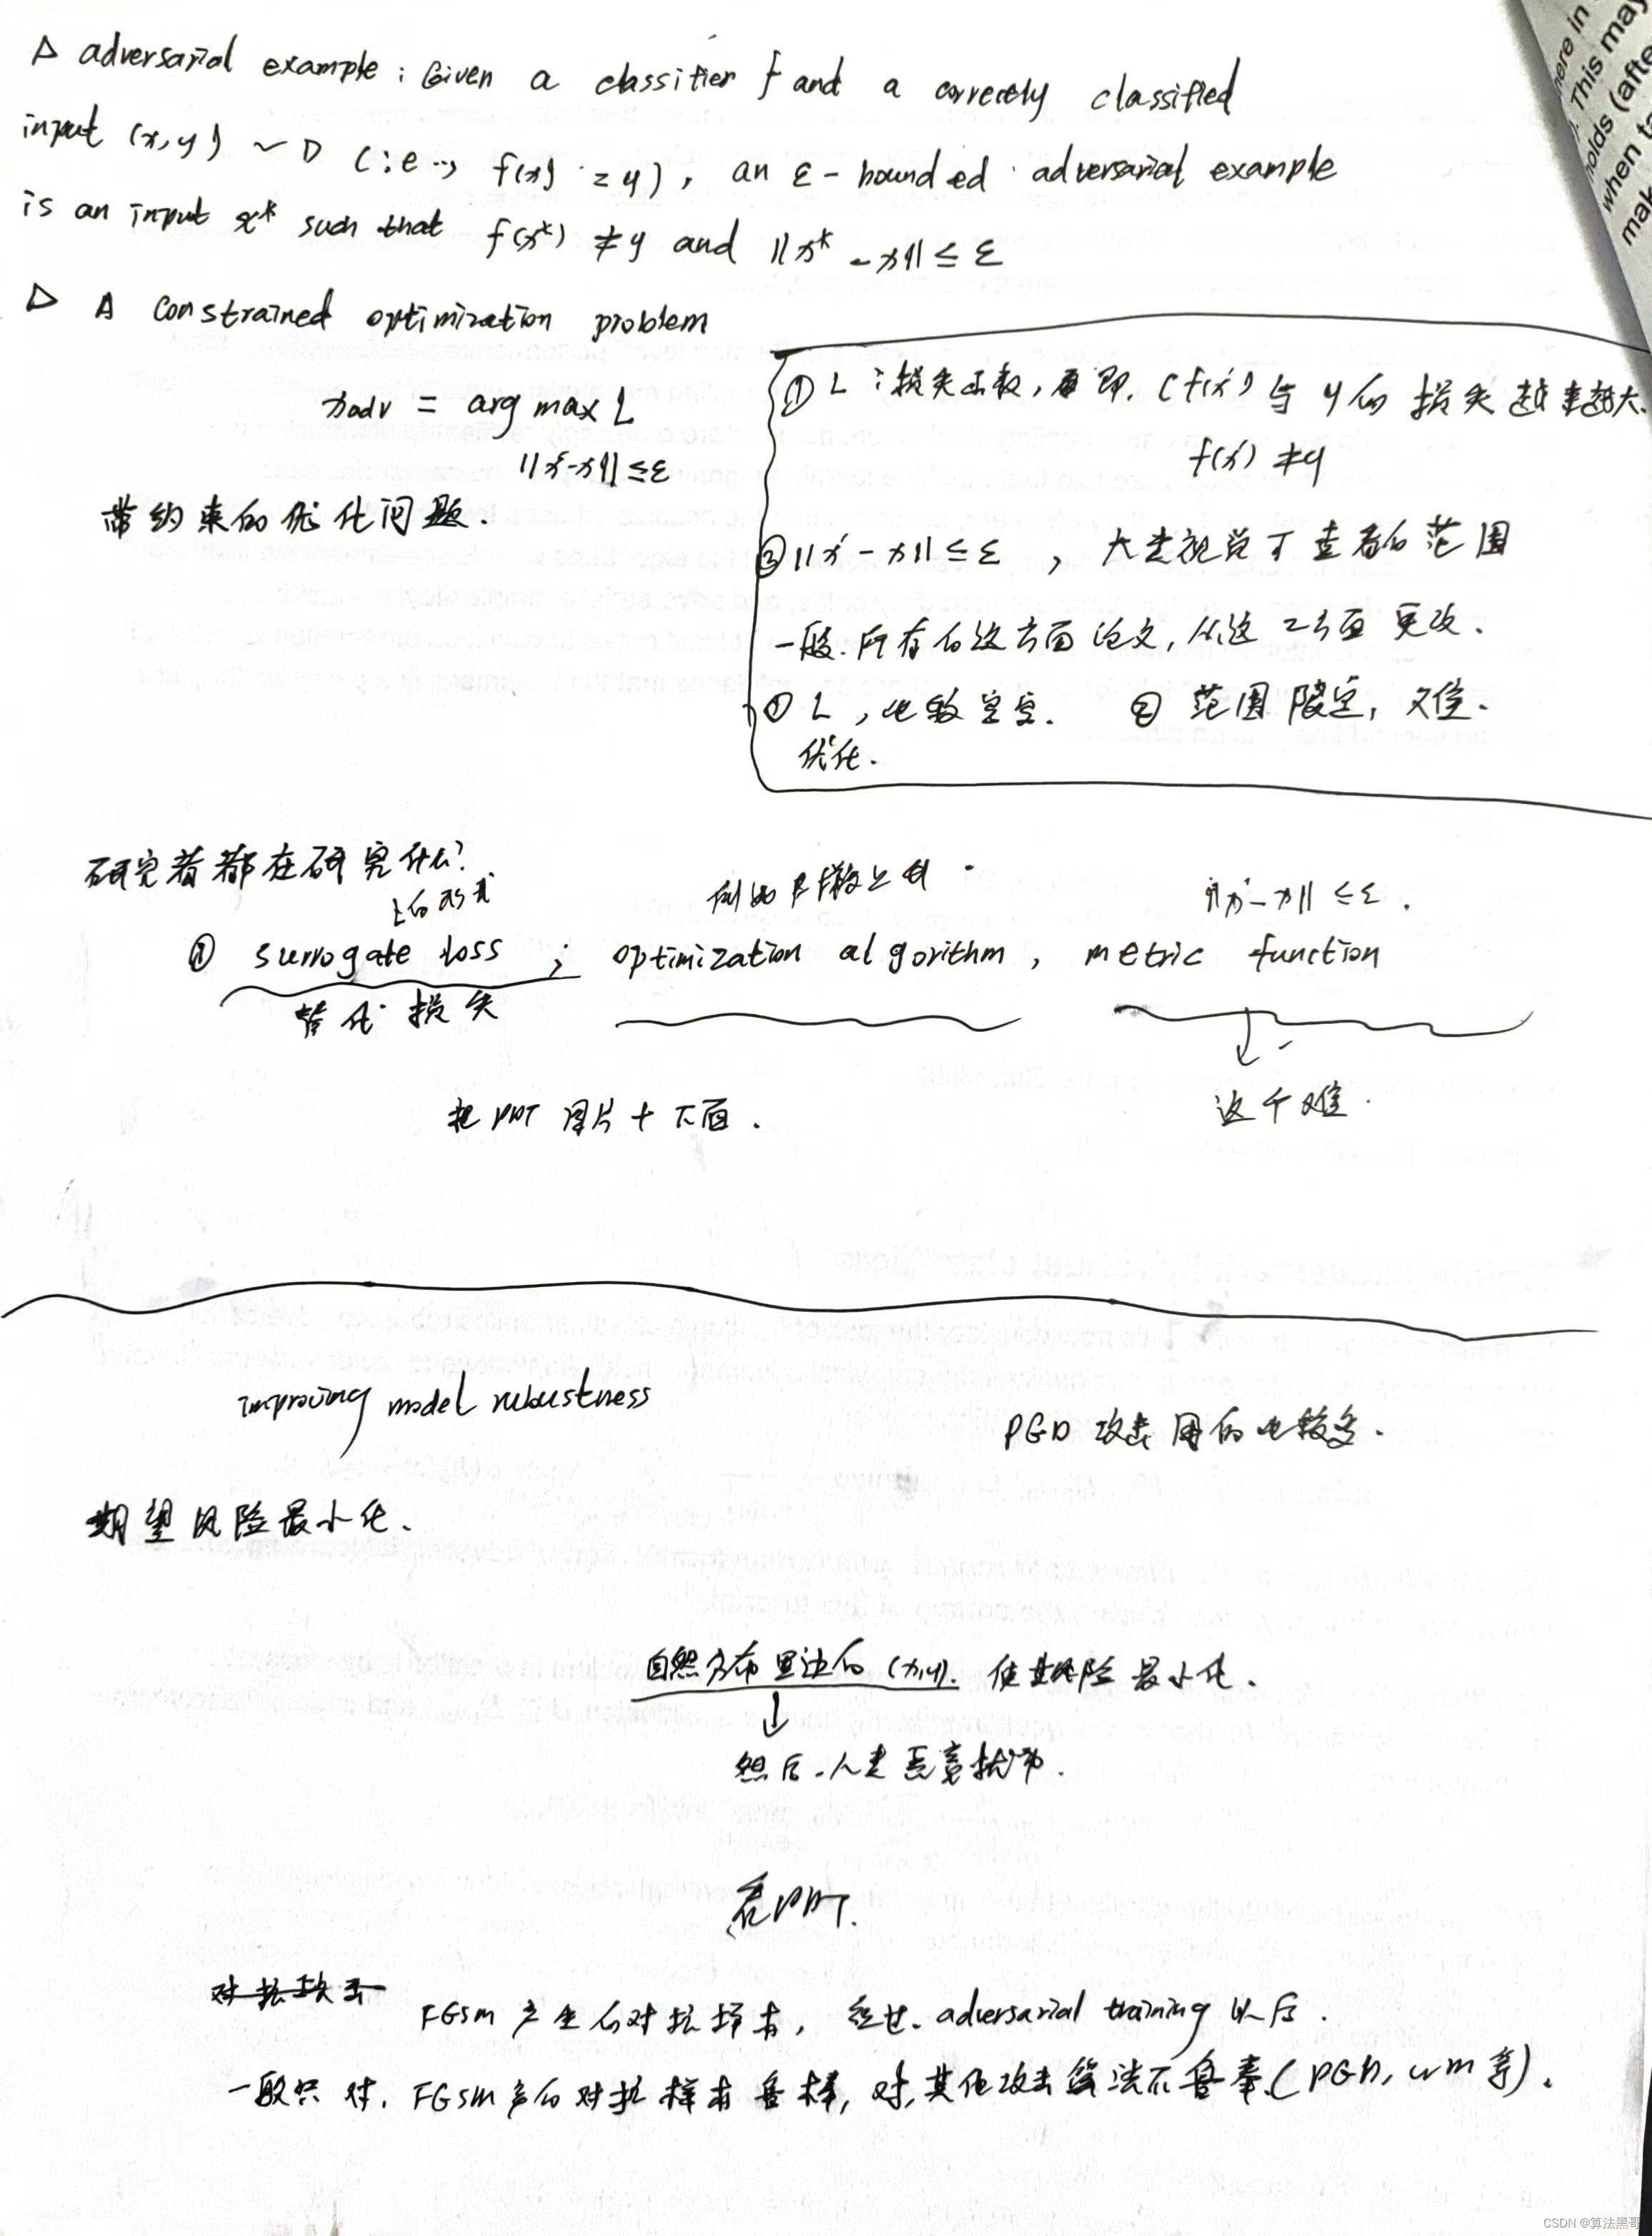 △ adversarial example: Given a classifier f and a correctly classified
input (x,y) ~ D (i.e., f(x) = y), an ε-bounded adversarial example
is an input x* such that f(x*) ≠ y and ||x* - x|| ≤ ε
▷ A constrained optimization problem
xadv = arg max L
||x'-x|| ≤ ε
带约束的优化问题.
① L:损失函数, 即. (f(x') 与 y的 损失越来越大.
f(x') ≠ y
② ||x' - x|| ≤ ε , 人类视觉可查看的范围
一般.所有的这方面论文,从这2方面更改.
① L , 比较宽. ② 范围限定, 难.
优化.
研究者都在研究什么?
L的形式
例如 ||x' - x|| ≤ ε .
① surrogate loss ; optimization algorithm , metric function
替代 损失
这个难.
把PPT 图片 + 下面 .
improving model robustness
PGD 攻击用的比较多.
期望风险最小化.
自然分布里边的 (x,y). 使其风险最小化.
然后.人类恶意扰动.
看PPT.
对抗攻击
FGSM 产生的对抗样本, 经过. adversarial training 以后.
一般只对. FGSM 产的对抗样本鲁棒, 对其他攻击算法不鲁棒(PGD, CW等).
here in
This may
holds (afte
when ta
mak
CSDN @算法黑哥